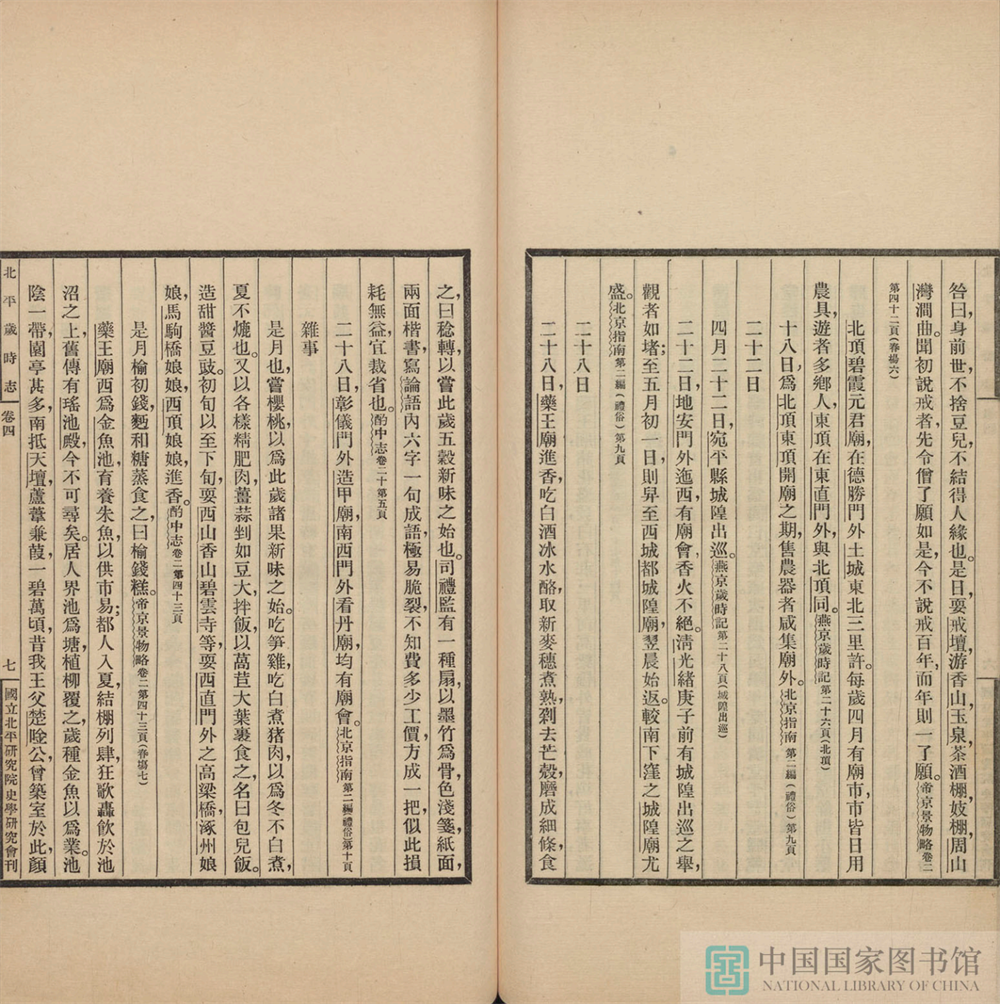 咎曰，身前世不捨豆兒，不結得人緣也。是日耍戒壇，游香山，玉泉茶酒棚妓棚，周山
灣澗曲。聞初說戒者，先令僧了願如是，今不說戒百年，而年則一了願。帝京景物略卷二
第四十二頁(春場六)
北頂碧霞元君廟，在德勝門外土城東北三里許。每歲四月有廟市，市皆日用
農具，遊者多鄉人，東頂在東直門外，與北頂同。燕京歲時記第二十六頁(北頂)
十八日，爲北頂東頂開廟之期，售農器者咸集廟外。北京指南第二編(禮俗)第九頁
二十二日
四月二十二日，宛平縣城隍出巡。燕京歲時記第二十八頁(城隍出巡)
二十二日，地安門外迤西，有廟會，香火不絕。淸光緒庚子前有城隍出巡之舉，
觀者如堵，至五月初一日則舁至西城都城隍廟，翌晨始返。較南下窪之城隍廟尤
盛。北京指南第二編(禮俗)第九頁
二十八日
二十八日，藥王廟進香，吃白酒冰水酪，取新麥穗煮熟，剁去芒殼，磨成細條食
之，曰稔轉，以嘗此歲五穀新味之始也。司禮監有一種扇，以墨竹爲骨，色淺箋紙面，
兩面楷書寫論語內六字一句成語，極易脆裂，不知費多少工價，方成一把，似此損
耗無益，宜裁省也。酌中志卷二十第五頁
二十八日，彰儀門外造甲廟，南西門外看丹廟，均有廟會。北京指南第二編(禮俗)第十頁
雜事
是月也，嘗櫻桃，以爲此歲諸果新味之始。吃笋雞，吃白煮猪肉，以爲冬不白煮，
夏不爊也。又以各樣精肥肉，薑蒜剉如豆大，拌飯，以萵苣大葉裹食之，名曰包兒飯。
造甜醬豆豉。初旬以至下旬，耍西山香山碧雲寺等，耍西直門外之高梁橋，涿州娘
娘，馬駒橋娘娘，西頂娘娘進香。酌中志卷二第四十三頁
是月榆初錢，麪和糖蒸食之，曰榆錢糕。帝京景物略卷二第四十三頁(春場七)
藥王廟西爲金魚池，育養朱魚，以供市易；都人入夏，結棚列肆，狂歌轟飲於池
沼之上，舊傳有瑤池殿，今不可尋矣。居人界池爲塘，植柳覆之，歲種金魚以爲業。池
陰一帶，園亭甚多，南抵天壇，蘆葦蒹葭，一碧萬頃，昔我王父楚唫公，曾築室於此，顏
北平歲時志
卷四
七
國立北平研究院史學研究會刊
中国国家图书馆
NATIONAL LIBRARY OF CHINA